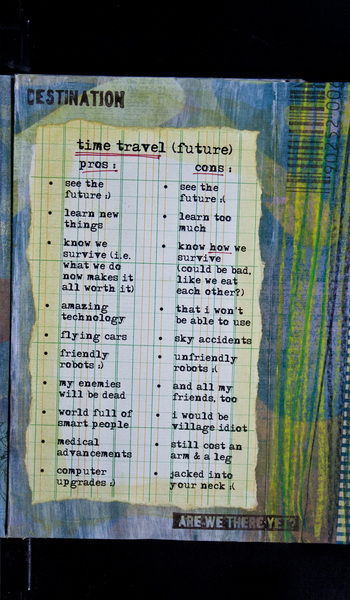 DESTINATION
time travel (future)
pros:
see the
future :)
learn new
things
know we
survive (i.e.
what we do
now makes it
all worth it)
amazing
technology
flying cars
friendly
robots :)
my enemies
will be dead
world full of
smart people
medical
advancements
computer
upgrades :)
cons:
see the
future :(
learn too
much
know how we
survive
(could be bad,
like we eat
each other?)
that i won't
be able to use
sky accidents
unfriendly
robots :(
and all my
friends, too
i would be
village idiot
still cost an
arm & a leg
jacked into
your neck :(
ARE WE THERE YET?